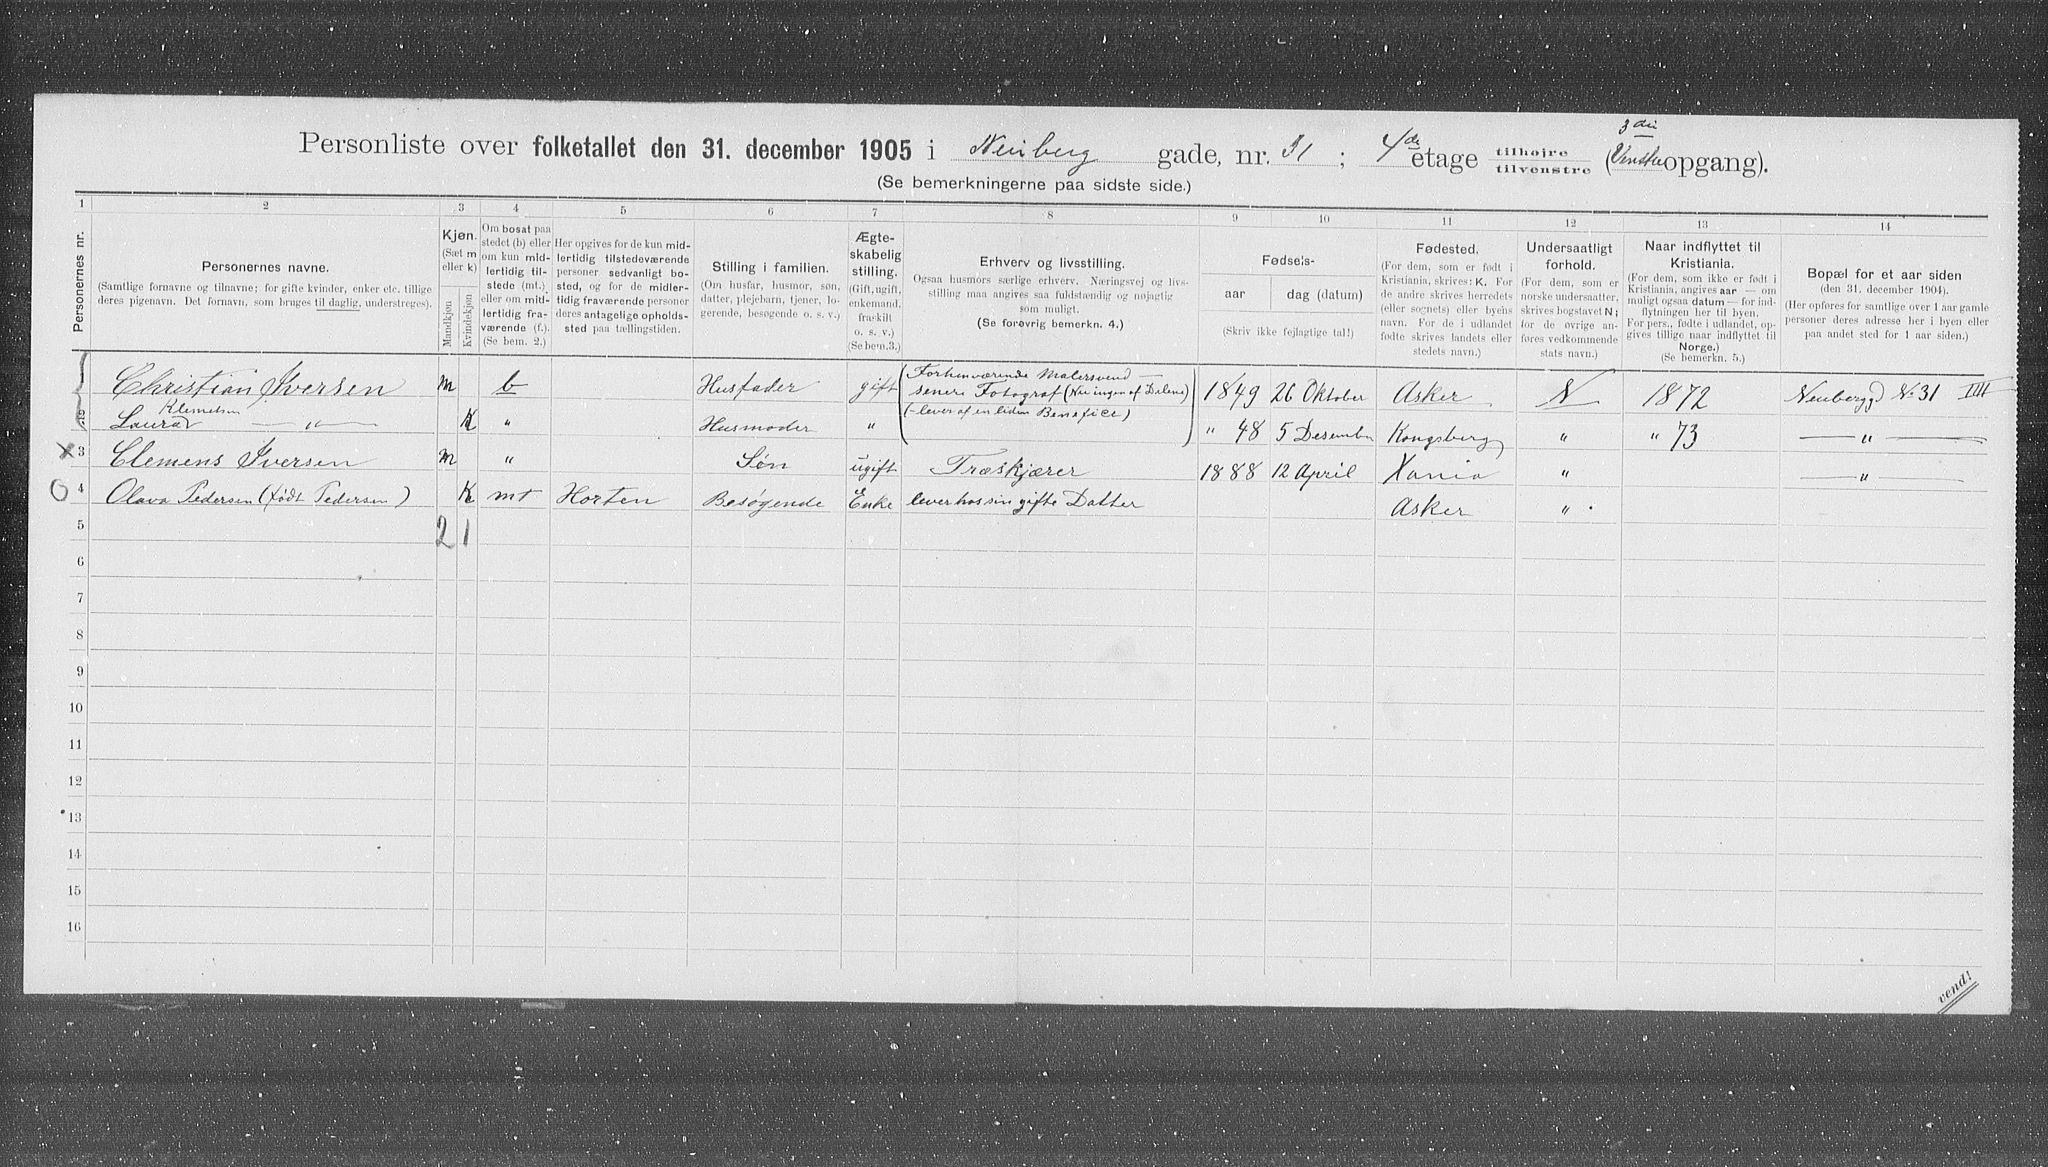 Personliste over folketallet den 31. december 1905 i Neuberg gade, nr. 31 ; 4de etage tilhøjre tilvenstre (Venstre opgang). 3die
(Se bemerkningerne paa sidste side.)
1 2 3 4 5 6 7 8 9 10 11 12 13 14
Personernes nr.
Personernes navne.
(Samtlige fornavne og tilnavne; for gifte kvinder, enker etc. tillige
deres pigenavn. Det fornavn, som bruges til daglig, understreges).
Kjøn.
(Sæt m
eller k)
Mandkjøn
Kvindekjøn
Om bosat paa
stedet (b) eller
om kun mid-
lertidig til-
stede (mt.)
eller om mid-
lertidig fra-
værende (f.).
(Se bem. 2.)
Her opgives for de kun mid-
lertidig tilstedeværende
personer sedvanligt bo-
sted, og for de midler-
tidig fraværende personer
deres antagelige opholds-
sted paa tællingstiden.
Stilling i familien.
(Om husfar, husmor, søn,
datter, plejebarn, tjener, lo-
gerende, besøgende o. s. v.)
Ægte-
skabelig
stilling.
(Gift, ugift,
enkemand,
fraskilt
o. s. v.)
(Se bem.3.)
Erhverv og livsstilling.
Ogsaa husmors særlige erhverv. Næringsvej og livs-
stilling maa angives saa fuldstændig og nøjagtig
som muligt.
(Se forøvrig bemerkn. 4.)
Fødsels-
aar
dag (datum)
(Skriv ikke fejlagtige tal!)
Fødested.
(For dem, som er født i
Kristiania, skrives: K. For
de andre skrives herredets
(eller sognets) eller byens
navn. For de i udlandet
fødte skrives landets eller
stedets navn.)
Undersaatligt
forhold.
(For dem, som er
norske undersaatter,
skrives bogstavet N;
for de øvrige an-
føres vedkommende
stats navn.)
Naar indflyttet til
Kristiania.
(For dem, som ikke er født i
Kristiania, angives aar — om
muligt ogsaa datum — for ind-
flytningen her til byen.
For pers., fødte i udlandet, op-
gives tillige naar indflyttet til
Norge.)
(Se bemerkn. 5.)
Bopæl for et aar siden
(den 31. december 1904).
(Her opføres for samtlige over 1 aar gamle
personer deres adresse her i byen eller
paa andet sted for 1 aar siden.)
Christian Iversen m b Husfader gift (Forhenværende Malersvend — senere Fotograf (Nu ingen af Delene) (-lever af en liden Benefice) 1849 26 Oktober Asker N 1872 Neubergg No 31 IIII
Klemetsen
Laura — " — K " Husmoder " " 48 5 Desember Kongsberg " " 73 — " —
x 3 Clemens Iversen m " Søn ugift Træskjærer 1888 12 April Xania " — " —
O 4 Olava Pedersen (født Pedersen) K mt Horten Besøgende Enke lever hos sin gifte Datter Asker "
5 2 1
6
7
8
9
10
11
12
13
14
15
16
vend!